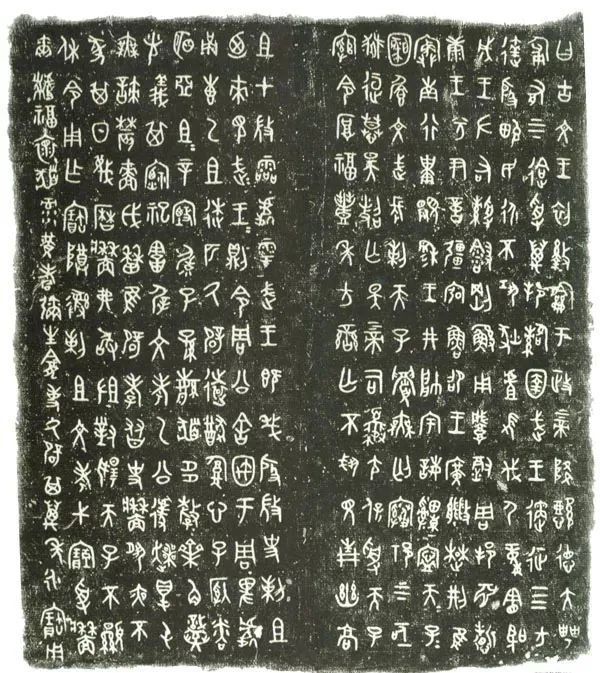 曰古文王初盭龢于政上帝降懿德大甹
匍有上下迨受萬邦訊圉武王遹征四方
達殷畯民永不巩狄虘髟伐尸童憲聖
成王左右綬會剛鯀用肇徹周邦淵哲
康王兮尹億疆宏魯卲王廣能楚荊隹
寏南行祗覭穆王井帥宇誨申寧天子
天子恪纘文武長剌天子眉無匄㝬祁上下亟
獄逗慕昊照亡斁上帝司夒尢保受天子
綰令厚福豐年方蠻亡不𢦚見青幽高
祖才微霝處雩武王既𢦏殷微史剌祖
廼來見武王武王則令周公舍宇于周卑處甬
叀乙祖逨匹厥辟遠猷腹心子納粦明
亞祖祖辛㽙毓子孫繁祓多孷齊角熾
光義其禋祀害屖文考乙公遽爽得屯
無諫農穡戉曆隹辟孝友史牆夙夜不
墜其日蔑曆牆弗敢沮對揚天子不顯
休令用作寶尊彝剌祖文考弋貯受牆
爾𪓐福懷祓祿黃耇彌生龕事厥辟其萬年永寶用